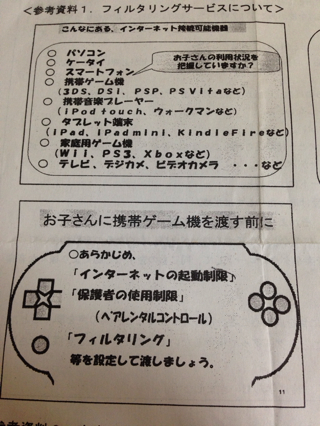 ＜参考資料１．フィルタリングサービスについて＞
こんなにある、インターネット接続可能機器
○ パソコン
○ ケータイ
○ スマートフォン
お子さんの利用状況を
把握していますか？
○ 携帯ゲーム機
（３DS、DSi、PSP、PSVitaなど）
○ 携帯音楽プレーヤー
（iPod touch、ウォークマンなど）
○ タブレット端末
（iPad、iPadmini、KindleFireなど）
○ 家庭用ゲーム機
（Wii、PS3、Xboxなど）
○ テレビ、デジカメ、ビデオカメラ ・・・など
お子さんに携帯ゲーム機を渡す前に
○あらかじめ、
「インターネットの起動制限」
「保護者の使用制限」
（ペアレンタルコントロール）
「フィルタリング」
等を設定して渡しましょう。
11